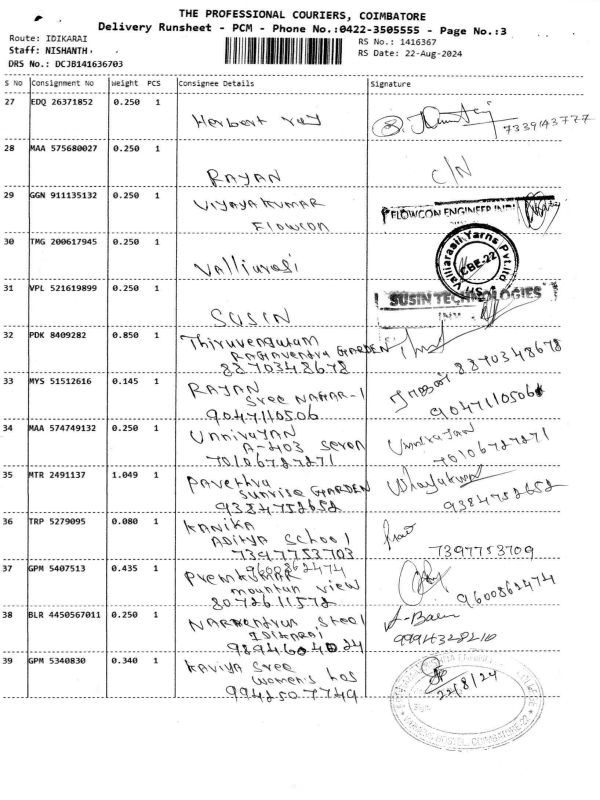 THE PROFESSIONAL COURIERS, COIMBATORE
Delivery Runsheet - PCM - Phone No.:0422-3505555 - Page No.:3
Route: IDIKARAI
RS No.: 1416367
Staff: NISHANTH
RS Date: 22-Aug-2024
DRS No.: DCJB141636703
S No Consignment No Weight PCS Consignee Details Signature
27 EDQ 26371852 0.250 1
Herbert ray 7339143777
28 MAA 575680027 0.250 1
RAYAN C/N
29 GGN 911135132 0.250 1 VIJAYAKUMAR
FLOWCON FLOWCON ENGINEER
30 TMG 200617945 0.250 1
Valliarasi Valliarasi Yarns Pvt.Ltd CBE-22
31 VPL 521619899 0.250 1
SUSIN SUSIN TECHNOLOGIES
32 PDK 8409282 0.850 1 Thiruvengutam
RAGAVENDRA GARDEN
8870348678 8870348678
33 MYS 51512616 0.145 1 RAJAN
Sree NAGAR-1
9047110506 9047110506
34 MAA 574749132 0.250 1 Unnirajan Unnirajan
A-403 Seven
70106727271 70106727271
35 MTR 2491137 1.049 1 Pavethra
Sunrise GARDEN
9384752652 9384752652
36 TRP 5279095 0.080 1 KANIKA
ADITYA School
7397753703 7397753709
37 GPM 5407513 0.435 1 9600862474
PremKUMAR
mountan view 9600862474
8072611572
38 BLR 4450567011 0.250 1 Steel
IDIKARAI
9894604024 9994328210
39 GPM 5340830 0.340 1 KAVIYA Sree
Women's hos
9942507749 22/8/24